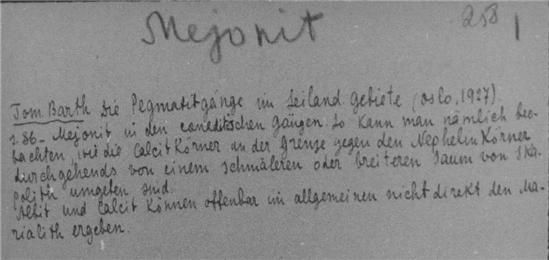 258
Mejonit
Tom Barth Die Pegmatitgänge im Seiland gebiete (Oslo, 1927)
s. 86 - Mejonit in den canaditischen Gängen. So kann man nämlich beo-
bachten, wie die Calcit Körner an der Grenze gegen den Nephelin Körner
durchgehends von einem schmäleren oder breiteren Saum von Ska-
polith umgeben sind.
Albit und Calcit können offenbar im allgemeinen nicht direkt den Ma-
rialith ergeben.